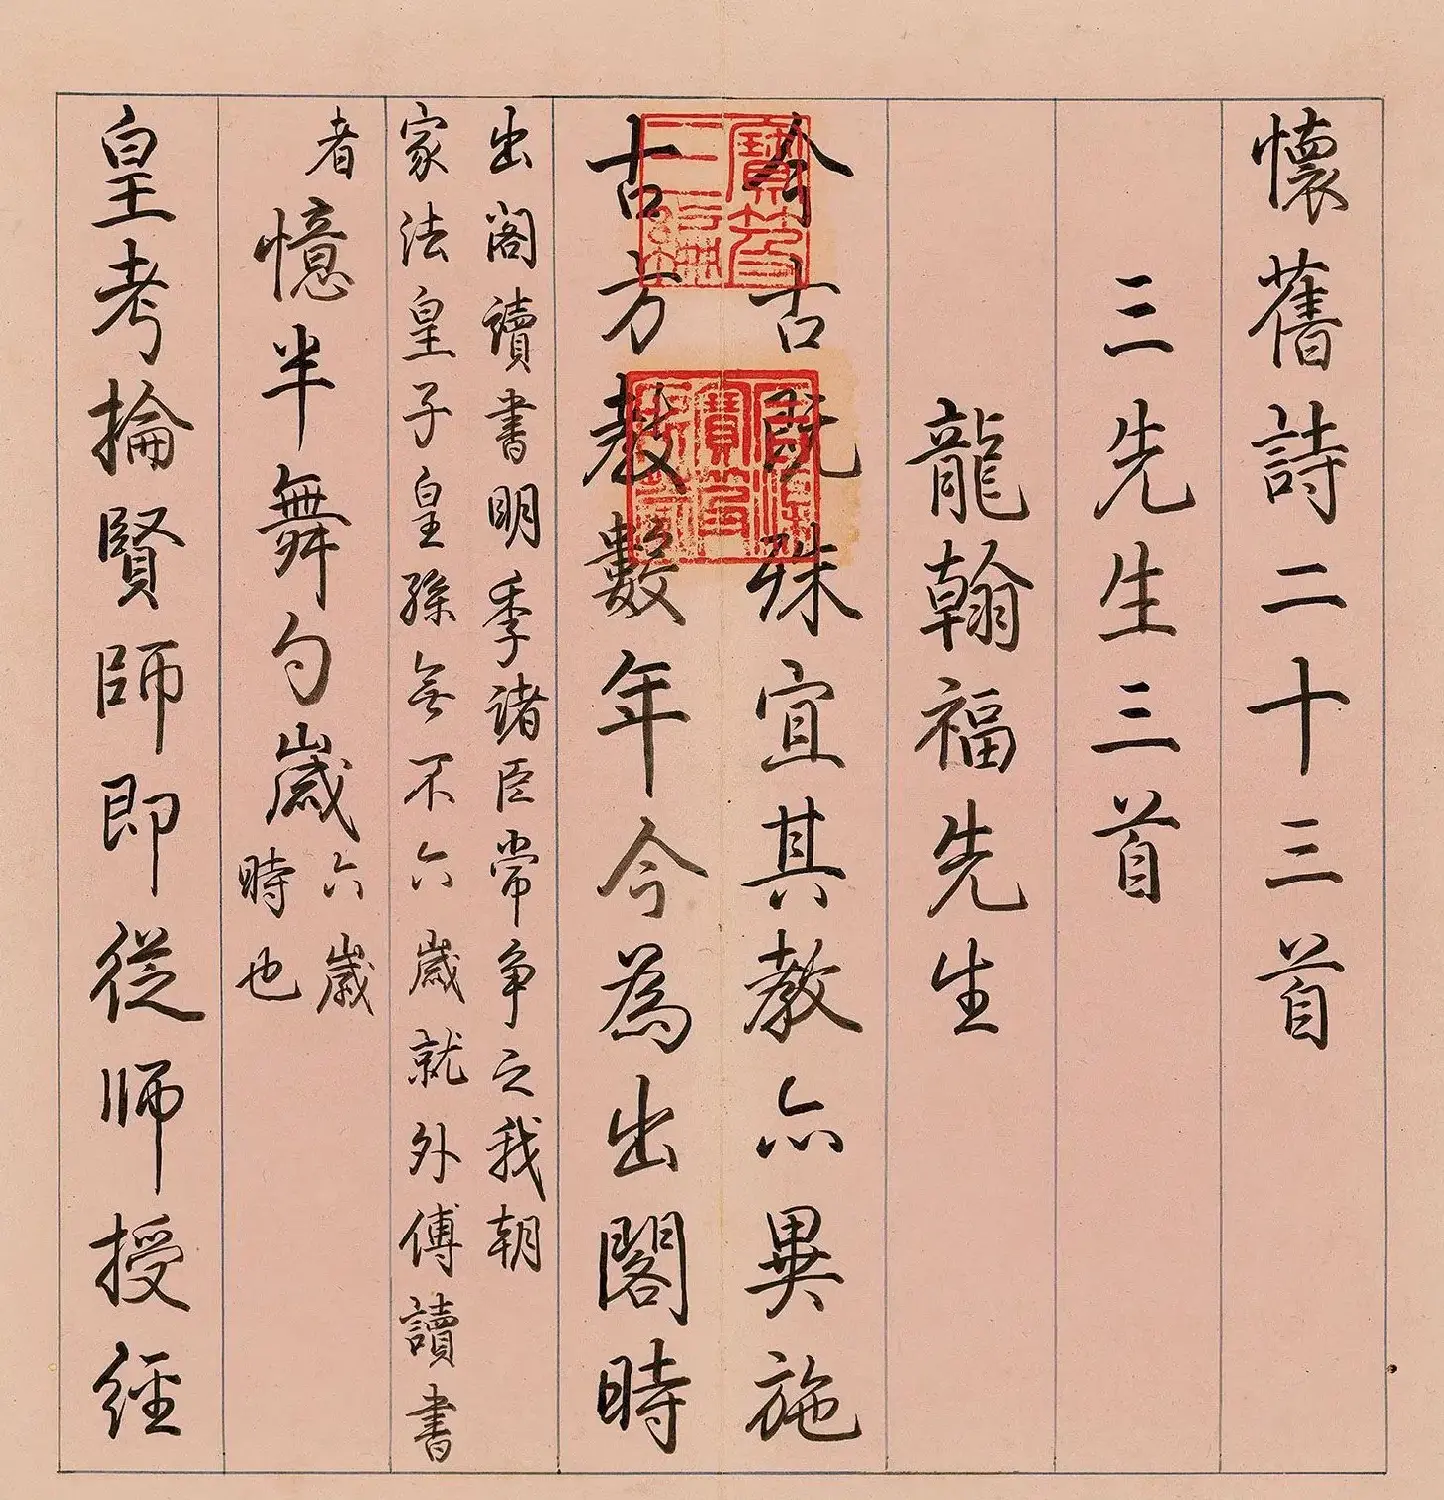 懷舊詩二十三首
三先生三首
龍翰福先生
今古既殊宜其教亦異施
古方教數年今為出閣時
出閣讀書明季諸臣常爭之我朝
家法皇子皇孫無不六歲就外傅讀書
者
憶半舞勺歲
六歲
時也
皇考掄賢師即從師授經
寶笈
三編
石渠
寶笈
所藏